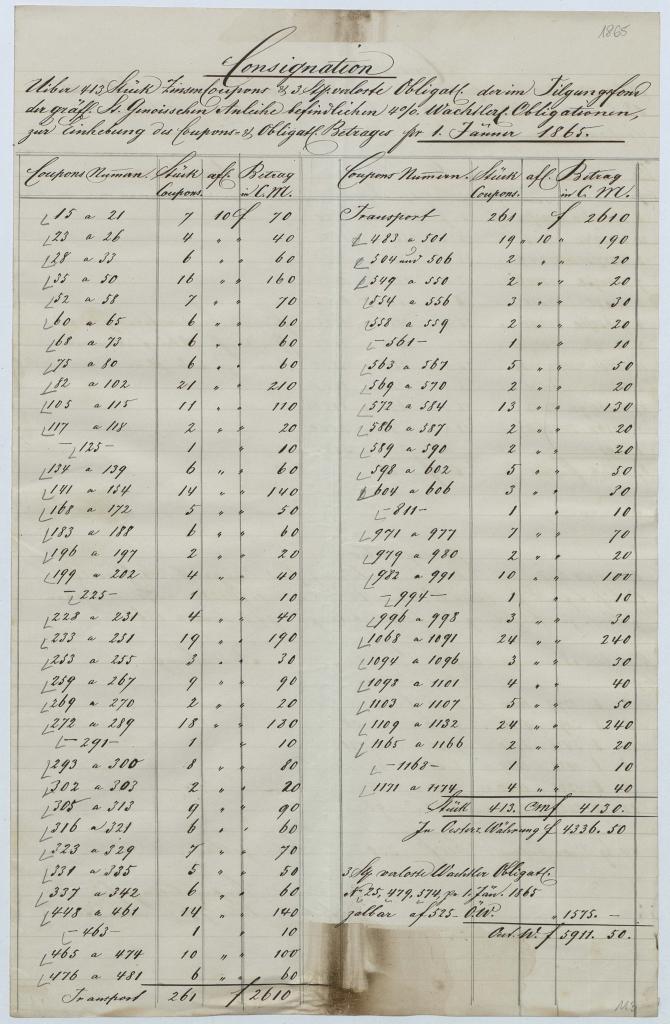 1865
Consignation
Uiber 413 Stück Zinsen Coupons & 3 Stp verloste Obligatt. der im Tilgungsfond
der gräfl. St. Genoisschen Anleihe befindlichen 4% Wachtler Obligationen,
zur Einhebung des Coupons- & Obligatt. Betrages pr 1. Jänner 1865.
Coupons Numern. Stück Coupons. af. Betrag in C. M.
15 a 21 7 10 f 70
23 a 26 4 " " 40
28 a 33 6 " " 60
35 a 50 16 " " 160
52 a 58 7 " " 70
60 a 65 6 " " 60
68 a 73 6 " " 60
75 a 80 6 " " 60
82 a 102 21 " " 210
105 a 115 11 " " 110
117 a 118 2 " " 20
- 125 - 1 " 10
134 a 139 6 " " 60
141 a 154 14 " " 140
168 a 172 5 " " 50
183 a 188 6 " " 60
196 a 197 2 " " 20
199 a 202 4 " " 40
- 225 - 1 " 10
228 a 231 4 " " 40
233 a 251 19 " " 190
253 a 255 3 " " 30
259 a 267 9 " " 90
269 a 270 2 " " 20
272 a 289 18 " " 180
- 291 - 1 " 10
293 a 300 8 " " 80
302 a 303 2 " " 20
305 a 313 9 " " 90
316 a 321 6 " " 60
323 a 329 7 " " 70
331 a 335 5 " " 50
337 a 342 6 " " 60
448 a 461 14 " " 140
- 463 - 1 " 10
465 a 474 10 " " 100
476 a 481 6 " " 60
Transport 261 f 2610
Coupons Numern. Stück Coupons. af. Betrag in C. M.
Transport 261 f 2610
483 a 501 19 " 10 " 190
504 und 506 2 " " 20
549 a 550 2 " " 20
554 a 556 3 " " 30
558 a 559 2 " " 20
- 561 - 1 " 10
563 a 567 5 " " 50
569 a 570 2 " " 20
572 a 584 13 " " 130
586 a 587 2 " " 20
589 a 590 2 " " 20
598 a 602 5 " " 50
604 a 606 3 " " 30
- 811 - 1 " 10
971 a 977 7 " " 70
979 a 980 2 " " 20
982 a 991 10 " " 100
- 994 - 1 " 10
996 a 998 3 " " 30
1068 a 1091 24 " " 240
1094 a 1096 3 " " 30
1098 a 1101 4 " " 40
1103 a 1107 5 " " 50
1109 a 1132 24 " " 240
1165 a 1166 2 " " 20
- 1168 - 1 " 10
1171 a 1174 4 " " 40
Stück 413. CM f 4130.
In Oesterr. Währung f 4336. 50
3 Stp verloste Wachtler Obligatt.
No 25, 479, 574, pr 1. Jän. 1865
zalbar af 525 - Ö.W. " 1575. -
Oest. W. f 5911. 50.